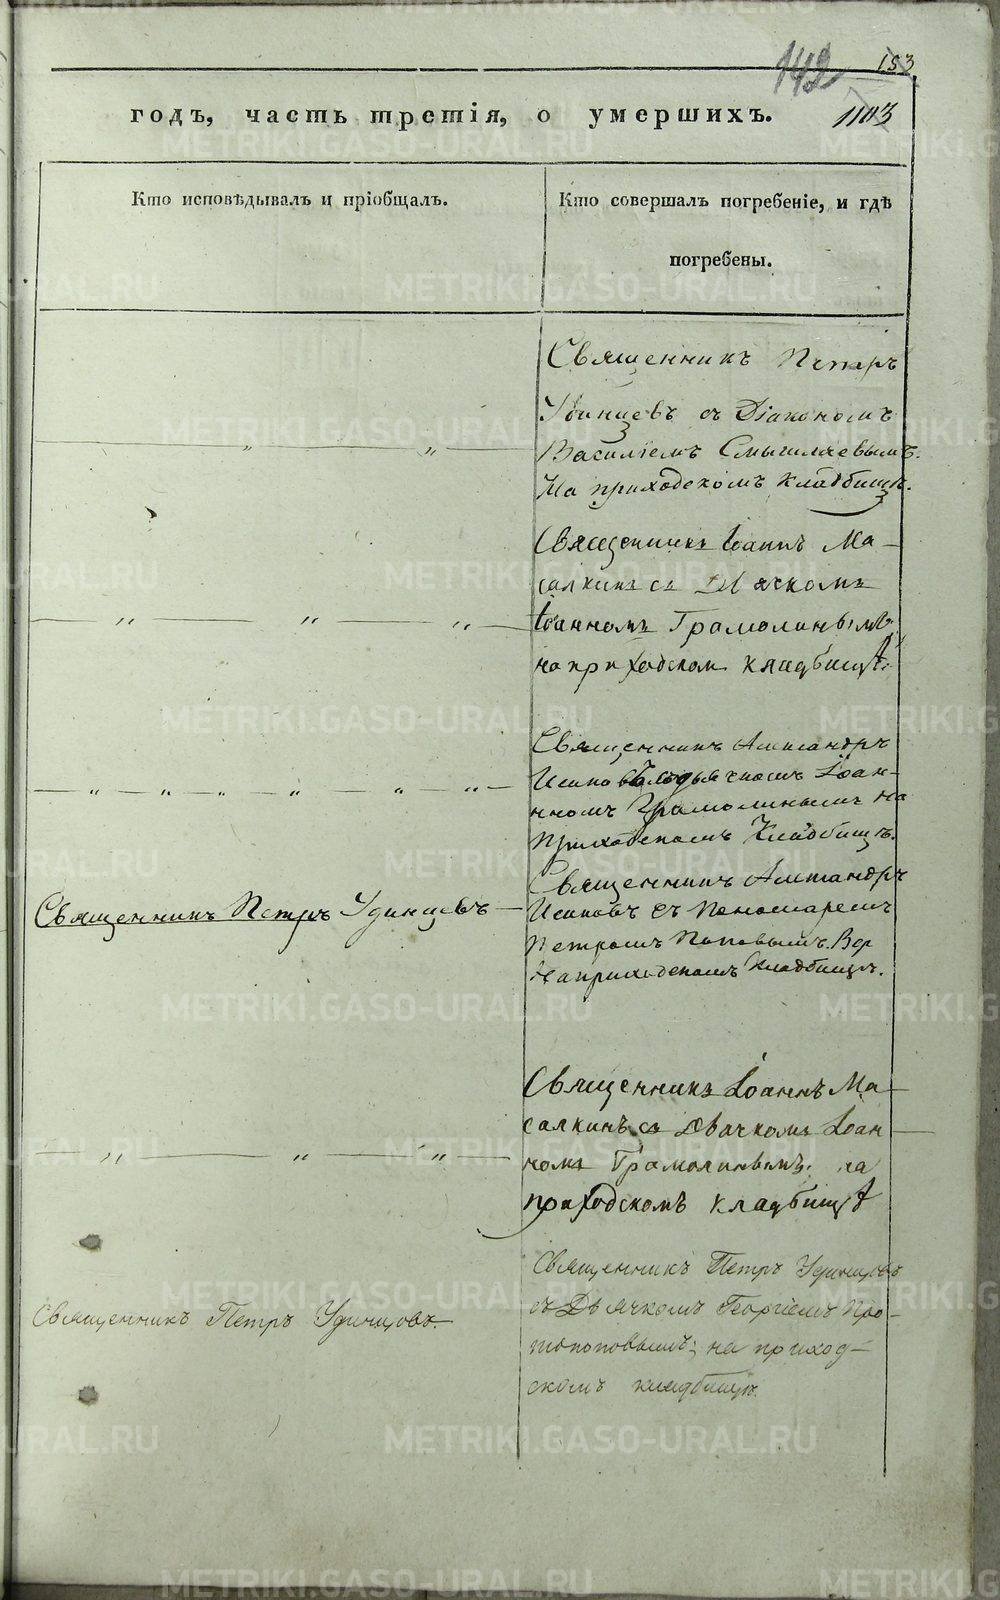 142 153
годъ, часть третія, о умершихъ. 1103
Кто исповѣдывалъ и пріобщалъ.
Кто совершалъ погребеніе, и гдѣ
погребены.
Священникъ Петръ
Удинцевъ съ Діакономъ
Василіемъ Смышляевымъ.
На приходскомъ кладбищѣ.
Священникъ Іоаннъ Ма-
салкинъ съ Дьячкомъ
Іоанномъ Грамолинымъ
на приходском кладбищѣ.
Священникъ Александръ
Іоан-
номъ Грамолинымъ на
Приходскомъ Кладбищѣ.
Священникъ Александръ
съ Пономаремъ
Петромъ Поповымъ.
На приходскомъ Кладбищѣ.
Священникъ Петръ Удинцевъ
Священникъ Іоаннъ Ма-
салкинъ съ Дьячкомъ Іоан-
номъ Грамолинымъ. на
приходскомъ кладбищѣ
Священникъ Петръ Удинцовъ
съ Дьячкомъ Георгіемъ Про-
топоповымъ; на приход-
скомъ кладбищѣ.
Священникъ Петръ Удинцовъ.
METRIKI.GASO-URAL.RU